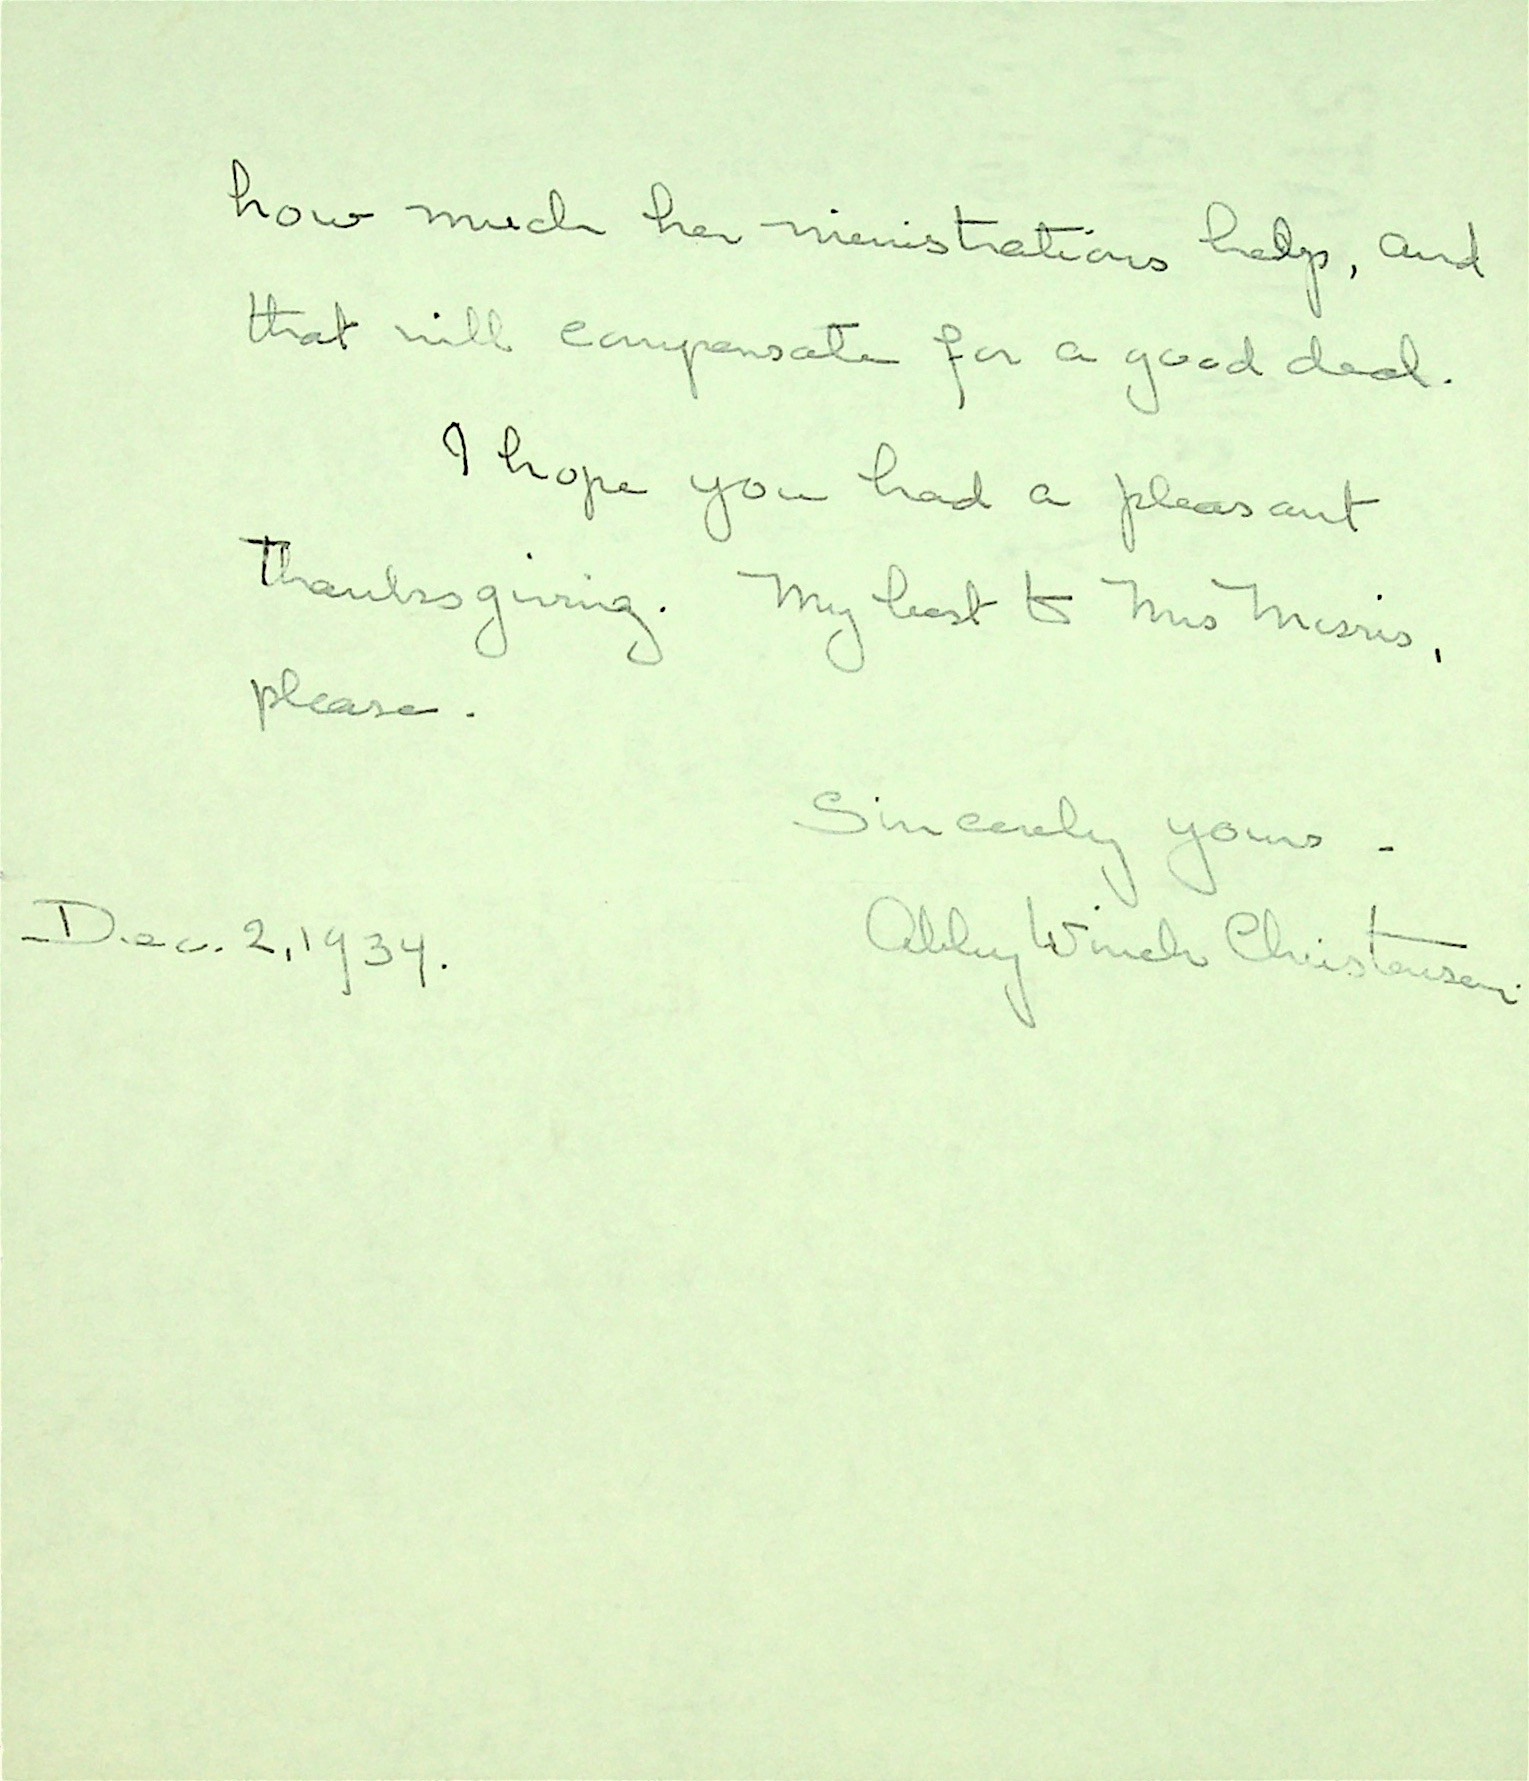 how much her ministrations help, and
that will compensate for a good deal.
I hope you had a pleasant
Thanksgiving. My best to Mrs Morris,
please.
Sincerely yours -
Dec. 2, 1934.
Abby Winch Christensen.